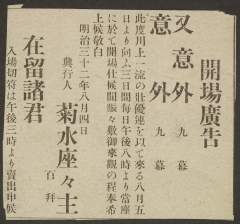 開場廣告
又意外 九幕
意外 九幕
此度川上一流の壯優連を以て來る八月五
日より向ふ三日間每日午後八時より當座
に於て開場仕候間賑々敷御來觀の程奉希
上候敬白
明治三十二年八月四日
興行人 菊水座々主
百拜
在留諸君
入場切符は午後三時より賣出申候